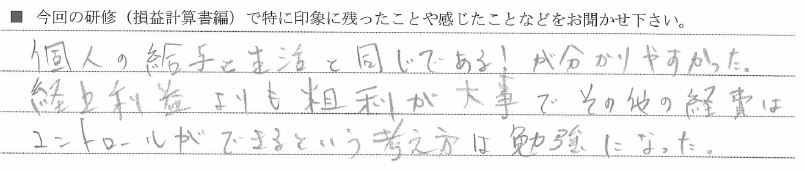 ■ 今回の研修（損益計算書編）で特に印象に残ったことや感じたことなどをお聞かせ下さい。
個人の給与と生活と同じである！が分かりやすかった。
経上利益よりも粗利が大事でその他の経費は
コントロールができるという考え方は勉強になった。